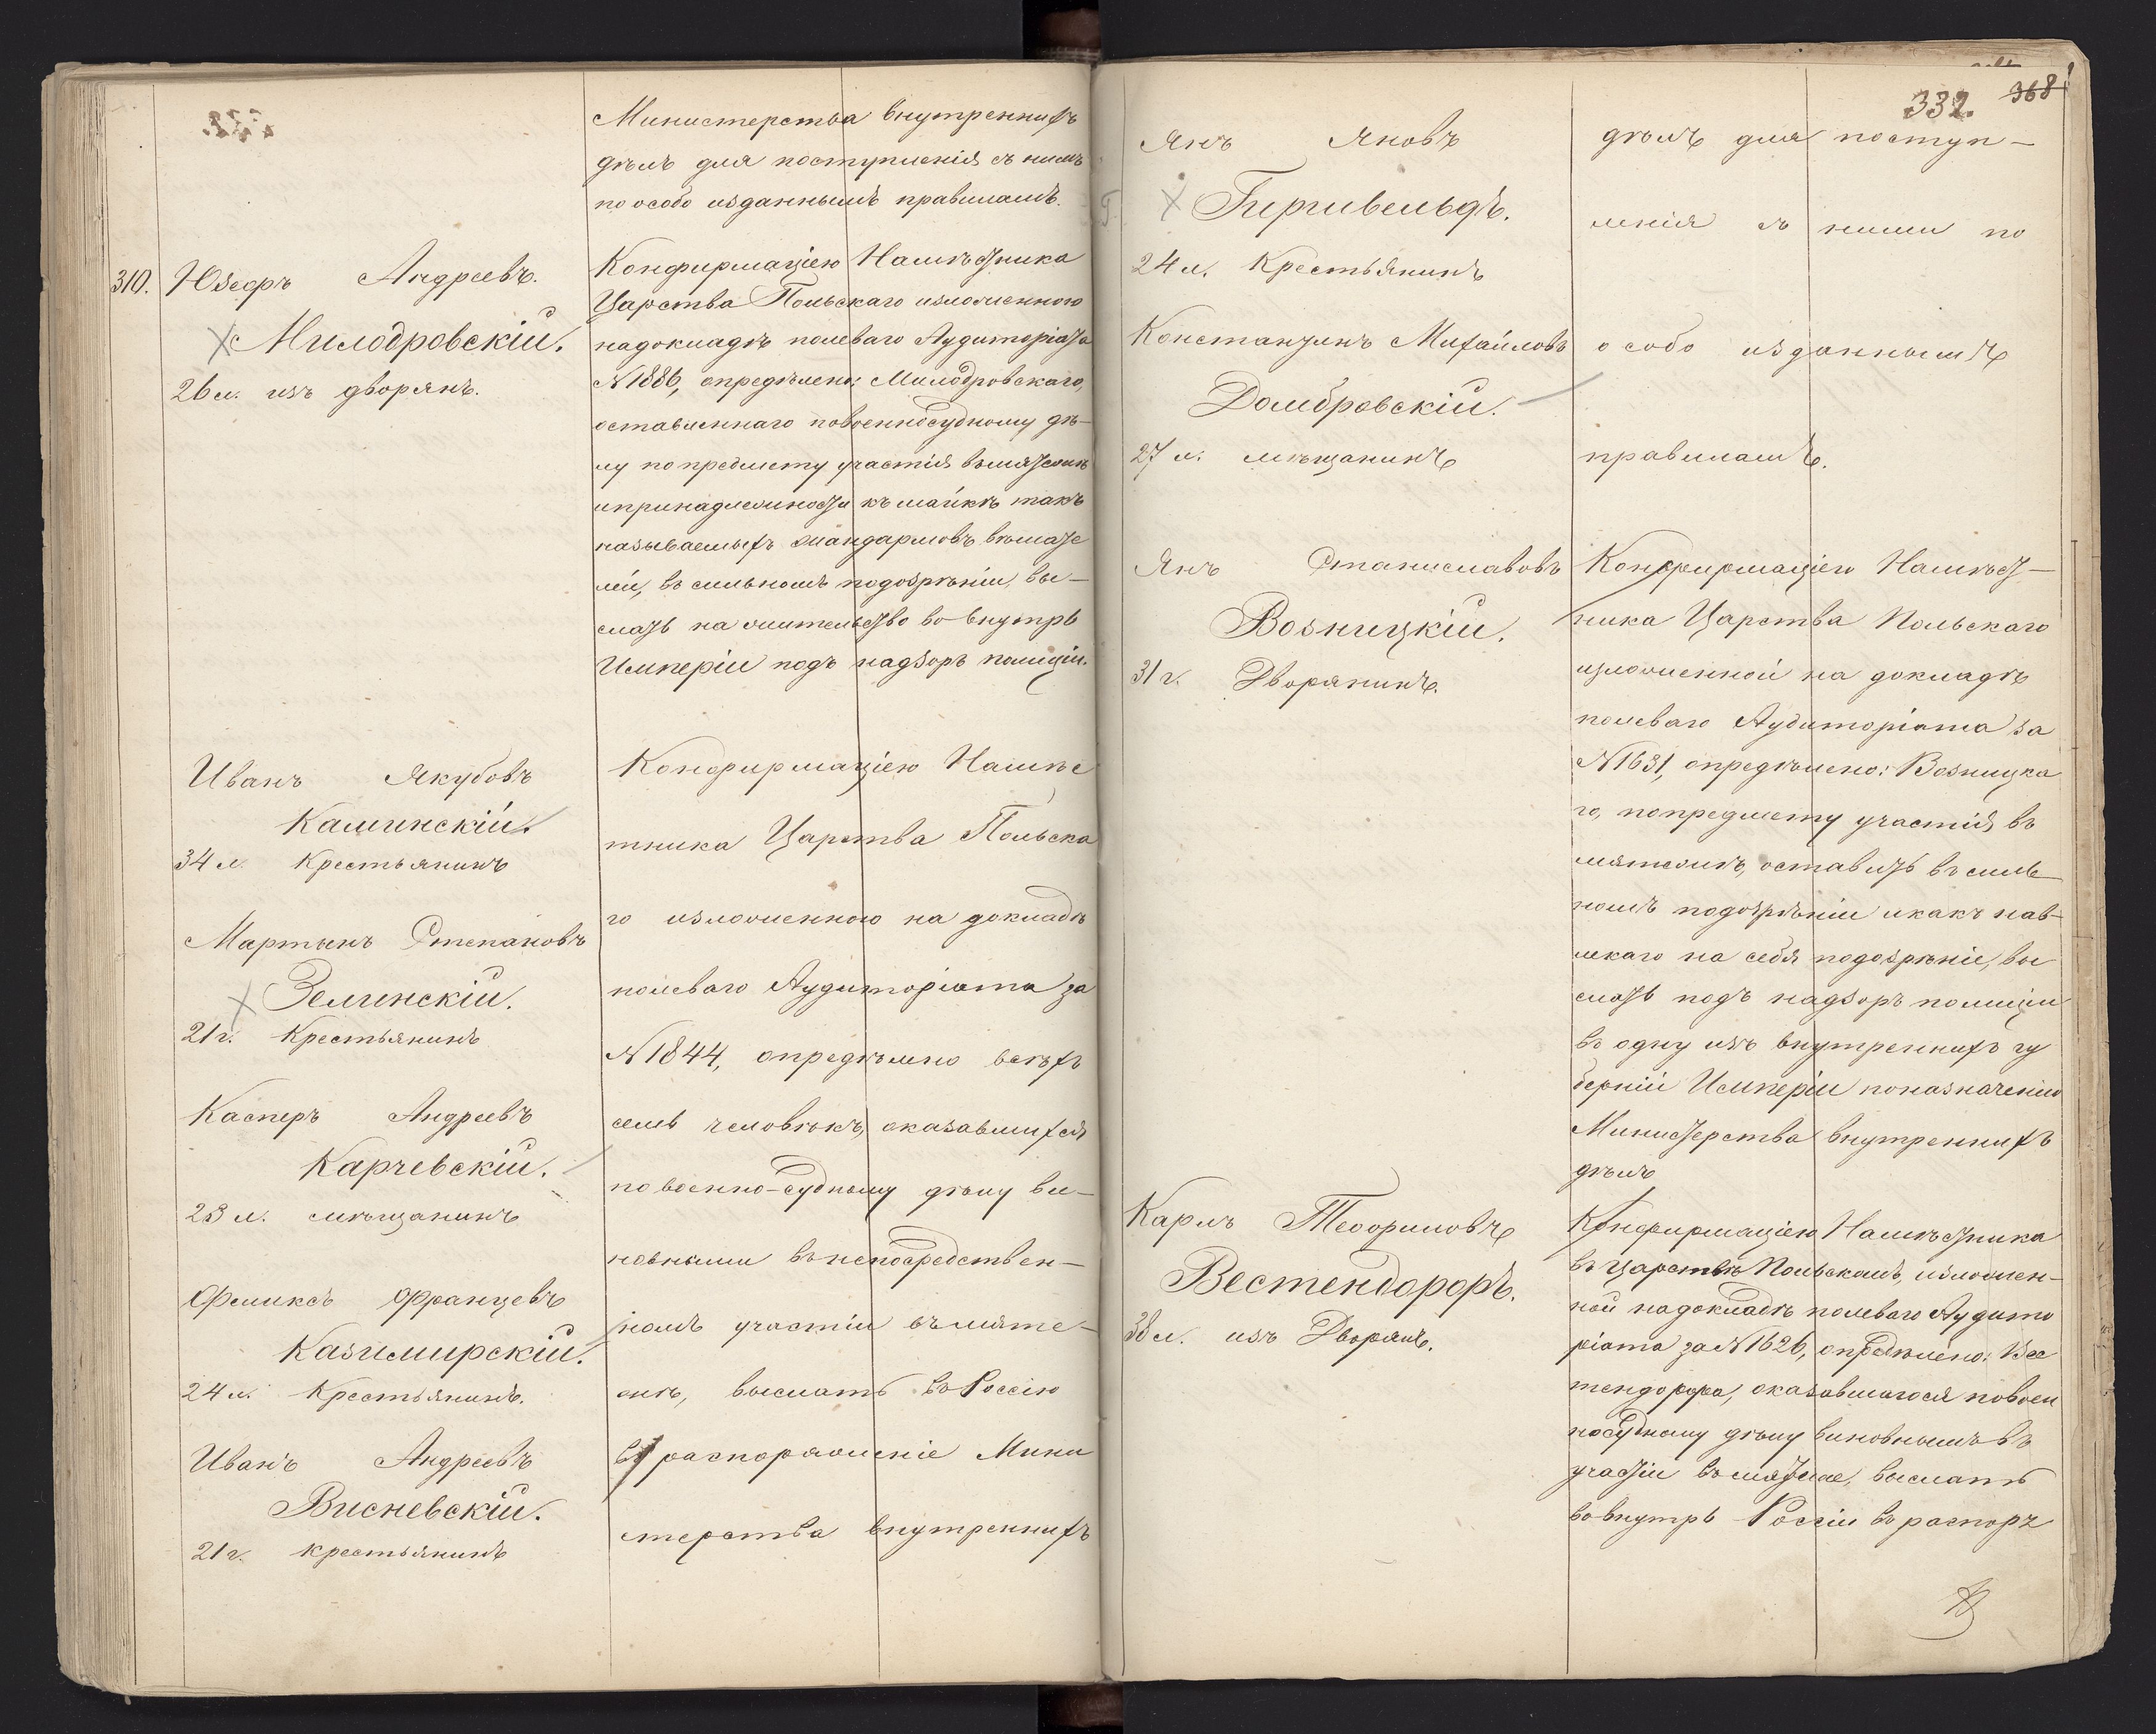 Министерства внутреннихъ
дѣлъ для поступленія съ нимъ
по особо изданнымъ правиламъ.
310. Юзефъ Андреевъ.
Милобровскій.
26 л. изъ дворянъ.
Конфирмаціею Намѣстника
Царства Польскаго изложенною
на докладѣ полеваго Аудиторіата
№ 1886, опредѣлено: Милобровскаго,
оставленнаго по военносудному дѣ-
лу по предмету участія въ мятежѣ
и принадлежности къ шайкѣ такъ
называемыхъ жандармовъ вѣшате
лей, въ сильномъ подозрѣніи, вы-
слать на жительство во внутрь
Имперіи подъ надзоръ полиціи.
Иванъ Якубовъ
Калинскій.
34 л. Крестьянинъ
Мартынъ Степановъ
Зелинскій.
21 г. Крестьянинъ
Касперъ Андреевъ
Карчевскій.
23 л. мѣщанинъ
Феликсъ Францевъ
Казимирскій.
24 л. Крестьянинъ.
Иванъ Андреевъ
Висневскій.
21 г. крестьянинъ
Конфирмаціею Намѣс
тника Царства Польска
го изложенною на докладѣ
полеваго Аудиторіата за
№ 1844, опредѣлено всѣхъ
семь человѣкъ, оказавшихся
по военно-судному дѣлу ви-
новными въ непосредствен-
номъ участіи въ мяте-
жѣ, выслать въ Россію
въ распоряженіе Мини
стерства внутреннихъ
332. 368
Янъ Яновъ
Гиргивельдъ.
24 л. Крестьянинъ
Константинъ Михайловъ
Домбровскій.
27 л. мѣщанинъ
дѣлъ для поступ-
ленія съ ними по
особо изданнымъ
правиламъ.
Янъ Станиславовъ
Возницкій.
31 г. Дворянинъ.
Конфирмаціею Намѣст-
ника Царства Польскаго
изложенной на докладѣ
полеваго Аудиторіата за
№ 1631, опредѣлено: Возницка
го, по предмету участія въ
мятежѣ, оставить въ силь
номъ подозрѣніи и какъ нав-
лекаго на себя подозрѣніе, вы
слать подъ надзоръ полиціи
въ одну изъ внутреннихъ гу
берній Имперіи по назначенію
Министерства внутреннихъ
дѣлъ
Карлъ Теофиловъ
Вестендорфъ.
38 л. изъ Дворянъ.
Конфирмаціею Намѣстника
въ Царствѣ Польскомъ, изложен-
ной на докладѣ полеваго Аудито
ріата за № 1626, опредѣлено: Вес
тендорфа, оказавшагося по воен
носудному дѣлу виновнымъ въ
участіи въ мятежѣ, выслать
во внутрь Россіи въ распоря